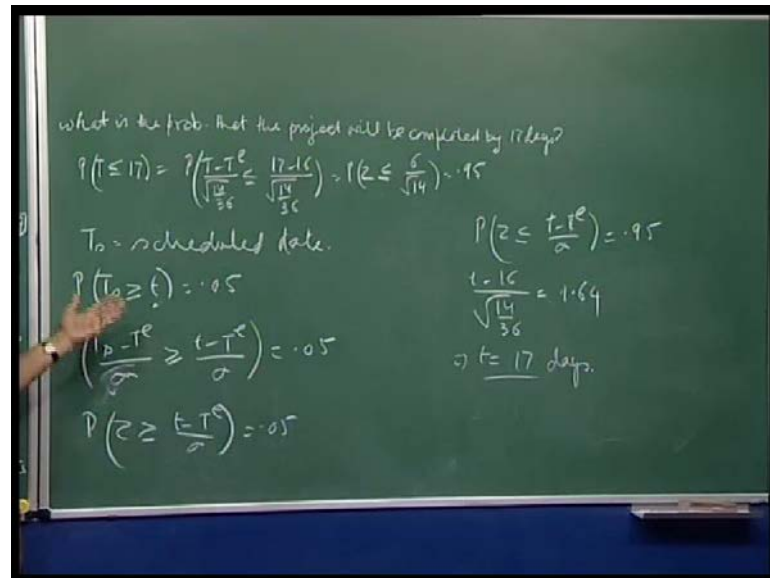 what is the prob. that the project will be completed by 17 days?
P(T ≤ 17) = P((T-T^e)/√(14/36) ≤ (17-16)/√(14/36)) = P(Z ≤ 6/√14) = .95
T_s = scheduled date.
P(T_s ≥ t) = .05
((T_s - T^e)/σ ≥ (t - T^e)/σ) = .05
P(Z ≥ (t - T^e)/σ) = .05
P(Z ≤ (t - T^e)/σ) = .95
(t - 16)/√(14/36) = 1.64
⇒ t = 17 days.